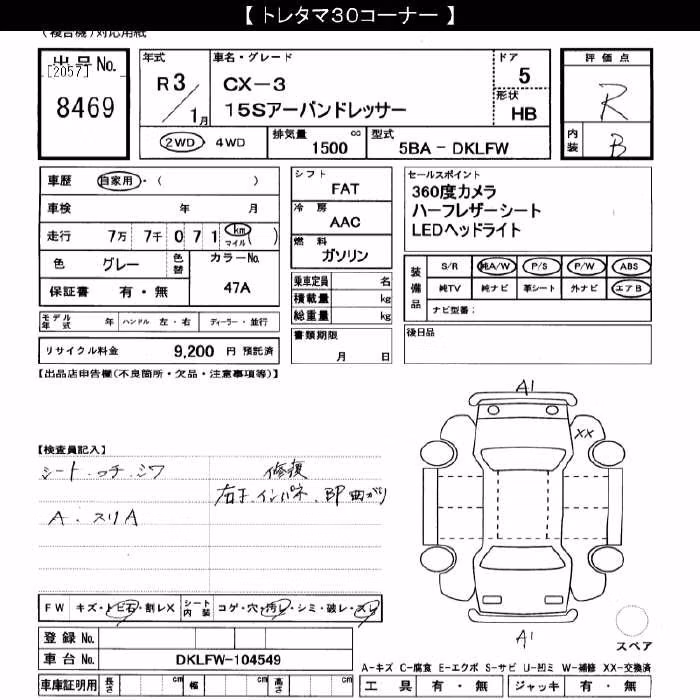 【 トレタマ30コーナー 】
(複合機)対応用紙
出品No.
[2057]
8469
年式
R3/1月
車名・グレード
CX-3
15Sアーバンドレッサー
ドア
5
形状
HB
評価点
R
内装
B
2WD・4WD
排気量 cc
1500
型式
5BA - DKLFW
車歴 自家用・( )
車検 年 月
走行 7万 7千 071 km マイル ( )
色 グレー 色替 カラーNo.
47A
保証書 有・無
モデル年式 年 ハンドル 左・右 ディーラー・並行
リサイクル料金 9,200 円 預託済
シフト
FAT
冷房
AAC
燃料
ガソリン
乗車定員 名
積載量 kg
総重量 kg
書類期限
月 日
セールスポイント
360度カメラ
ハーフレザーシート
LEDヘッドライト
装備品
S/R 純A/W P/S P/W ABS
純TV 純ナビ 革シート 外ナビ エアB
ナビ型番:
後日品
【出品店申告欄(不良箇所・欠品・注意事項等)】
【検査員記入】
シート・コチ・シワ
A・スリA
修復
右F.インパネ.BP曲がり
A1
XX
A1
スペア
FW キズ・トビ石・割レX シート内装 コゲ・穴・汚レ・シミ・破レ・スレ
登録No.
車台No. DKLFW-104549
車庫証明用 長さ cm 幅 cm 高さ cm
A-キズ C-腐食 E-エクボ S-サビ U-凹ミ W-補修 XX-交換済
工具 有・無 ジャッキ 有・無